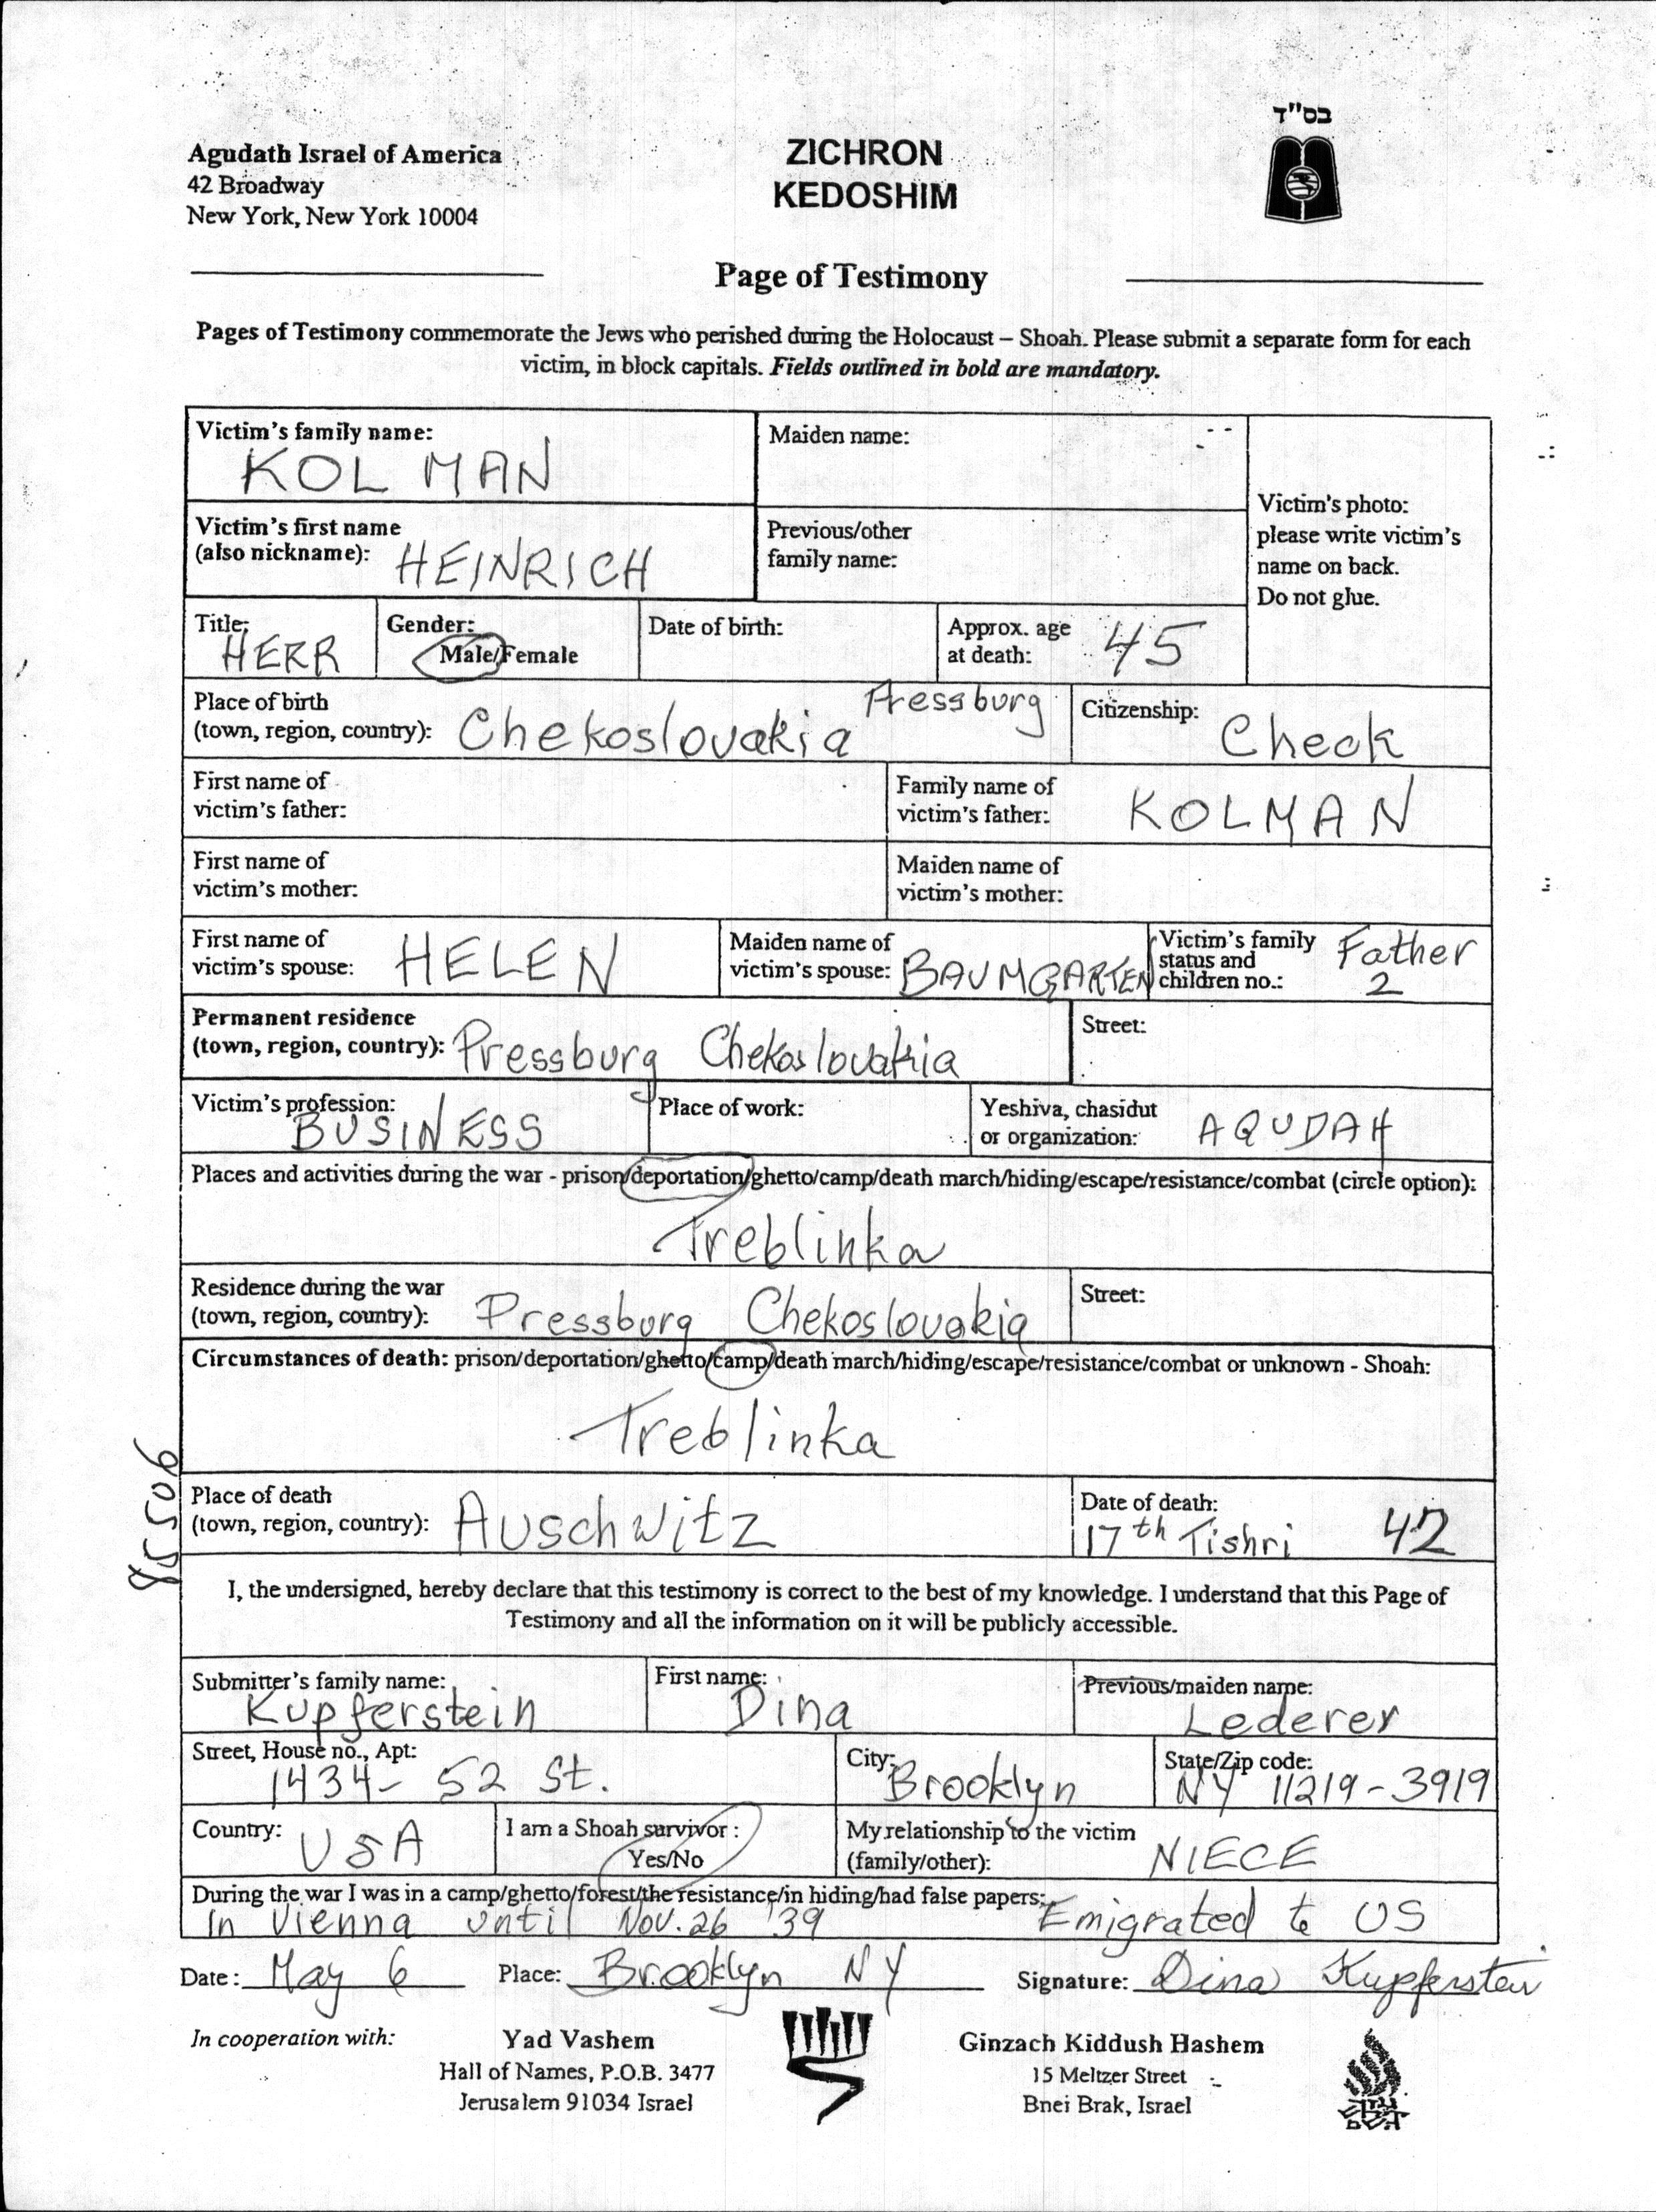 בס"ד
Agudath Israel of America
42 Broadway
New York, New York 10004
ZICHRON
KEDOSHIM
Page of Testimony
Pages of Testimony commemorate the Jews who perished during the Holocaust – Shoah. Please submit a separate form for each
victim, in block capitals. Fields outlined in bold are mandatory.
Victim's family name:
KOLMAN
Maiden name:
Victim's photo:
please write victim's
name on back.
Do not glue.
Victim's first name
(also nickname): HEINRICH
Previous/other
family name:
Title:
HERR
Gender:
Male/Female
Date of birth:
Approx. age
at death: 45
Place of birth
(town, region, country): Chekoslovakia Pressburg
Citizenship:
Check
First name of
victim's father:
Family name of
victim's father: KOLMAN
First name of
victim's mother:
Maiden name of
victim's mother:
First name of
victim's spouse: HELEN
Maiden name of
victim's spouse: BAUMGARTEN
Victim's family
status and
children no.:
Father
2
Permanent residence
(town, region, country): Pressburg Chekoslovakia
Street:
Victim's profession:
BUSINESS
Place of work:
Yeshiva, chasidut
or organization: AGUDAH
Places and activities during the war - prison/deportation/ghetto/camp/death march/hiding/escape/resistance/combat (circle option):
Treblinka
Residence during the war
(town, region, country): Pressburg Chekoslovakia
Street:
Circumstances of death: prison/deportation/ghetto/camp/death march/hiding/escape/resistance/combat or unknown - Shoah:
Treblinka
Place of death
(town, region, country): Auschwitz
Date of death:
17th Tishri 42
I, the undersigned, hereby declare that this testimony is correct to the best of my knowledge. I understand that this Page of
Testimony and all the information on it will be publicly accessible.
Submitter's family name:
Kupferstein
First name:
Dina
Previous/maiden name:
Lederer
Street, House no., Apt:
1434- 52 St.
City:
Brooklyn
State/Zip code:
NY 11219-3919
Country: USA
I am a Shoah survivor:
Yes/No
My relationship to the victim
(family/other): NIECE
During the war I was in a camp/ghetto/forest/the resistance/in hiding/had false papers:
In Vienna until Nov. 26 '39 Emigrated to US
Date: May 6 Place: Brooklyn NY Signature: Dina Kupferstein
In cooperation with:
Yad Vashem
Hall of Names, P.O.B. 3477
Jerusalem 91034 Israel
Ginzach Kiddush Hashem
15 Meltzer Street
Bnei Brak, Israel